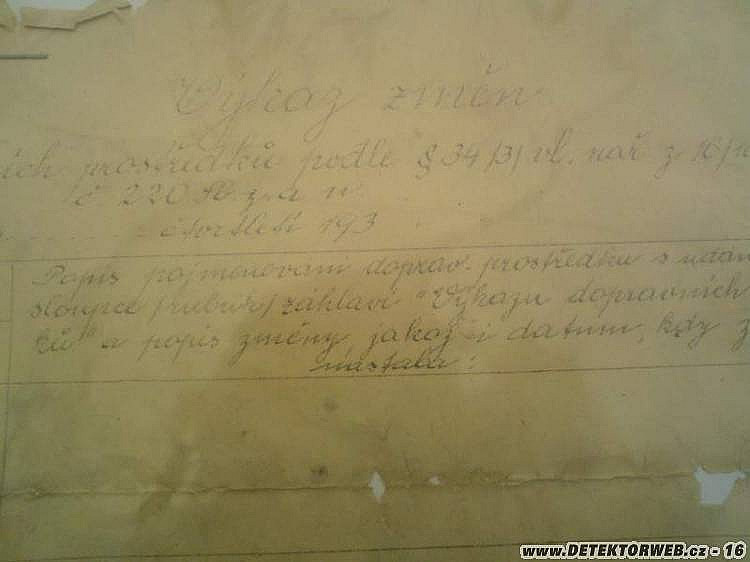 Výkaz změn
ích prostředků podle § 34/3/ vl. nař z 16/
č. 220 Sb. z. a n.
čtvrtletí 193
Popis pojmenování doprav. prostředku s udán
sloupce /rubrir/ záhlaví "Výkazu dopravních
ků" a popis změny jakož i datum, kdy z
nastala:
www.DETEKTORWEB.cz - 16